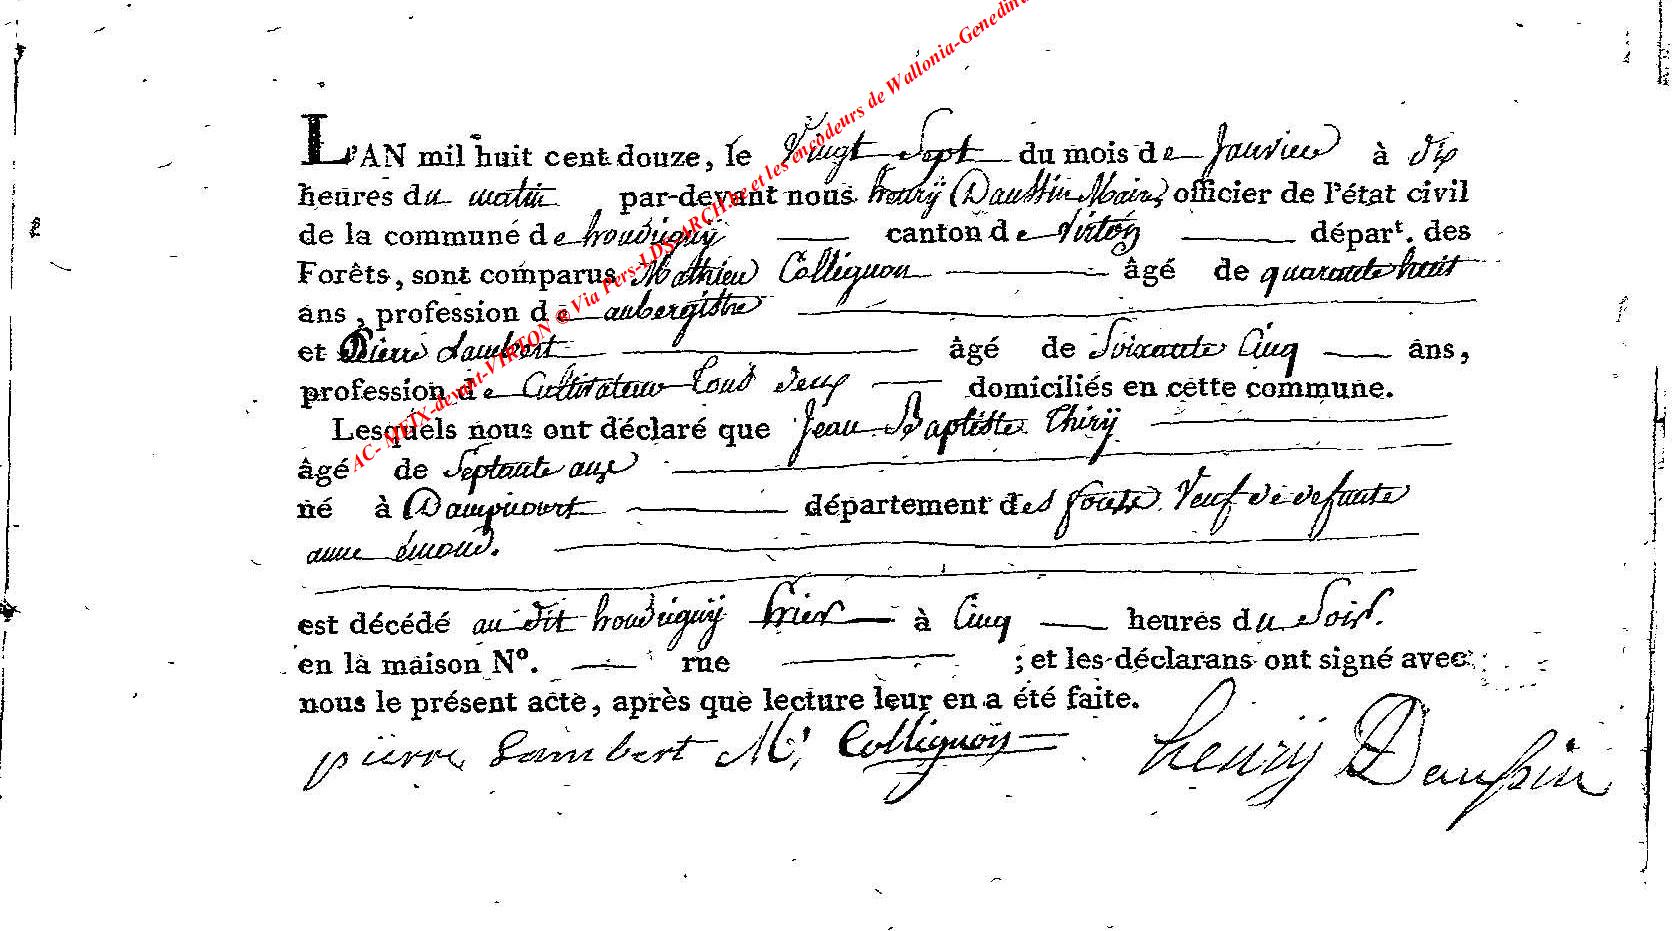 AC- MEIX-devant-VIRTON @ Via Pers-LDS-ARCH.be et les encodeurs de Wallonia-Genedin
L'AN mil huit cent douze, le Vingt Sept du mois de Janvier à dix
heures du matin par-devant nous henrÿ Daussin Maire, officier de l'état civil
de la commune de houdrignÿ canton de Virton départ. des
Forêts, sont comparus Mathieu Collignon âgé de quarante huit
ans, profession de aubergiste
et Pierre Lambert âgé de Soixante Cinq ans,
profession de Cultivateur tous deux domiciliés en cette commune.
Lesquels nous ont déclaré que Jean Baptiste Thirÿ
âgé de Septante ans
né à Dampicourt département des forets Veuf de defunte
anne
est décédé au dit houdrignÿ hier à Cinq heures du Soir.
en la maison N°. rue ; et les déclarans ont signé avec
nous le présent acte, après que lecture leur en a été faite.
pierre Lambert M, Collignon henrÿ Daussin